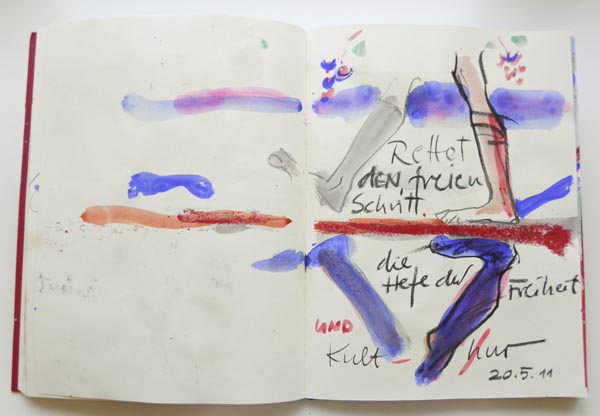 Rettet
den freien
Schritt.
die
Hefe der Freiheit
UND
Kult – hur
20.5.11